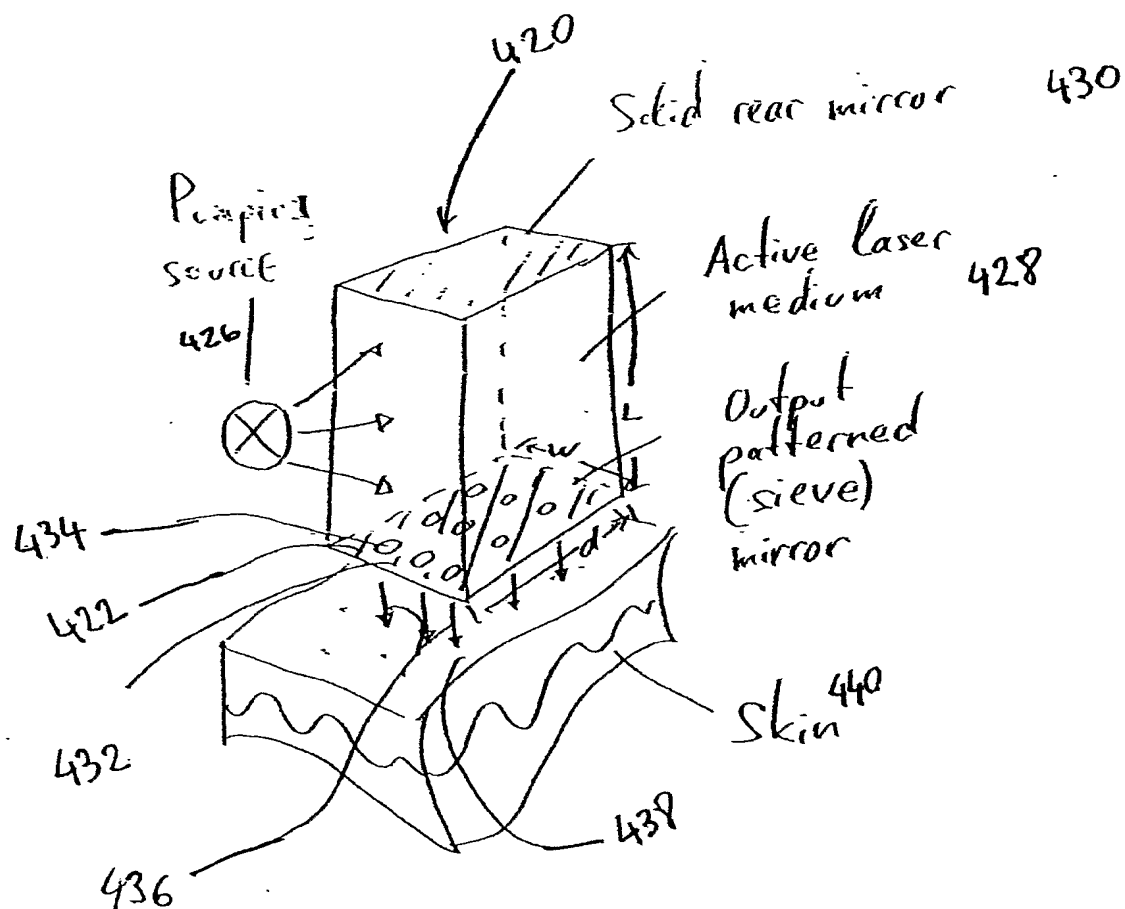 420
Solid rear mirror 430
Pumping
source
426
Active laser
medium 428
L
Output
patterned
(sieve)
mirror
w
d
434
422
432
Skin 440
438
436